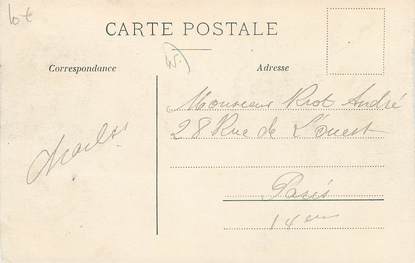 10 €
CARTE POSTALE
Correspondance
Adresse
Monsieur Riot André
28 Rue de L'ouest
Charles
Paris
14em